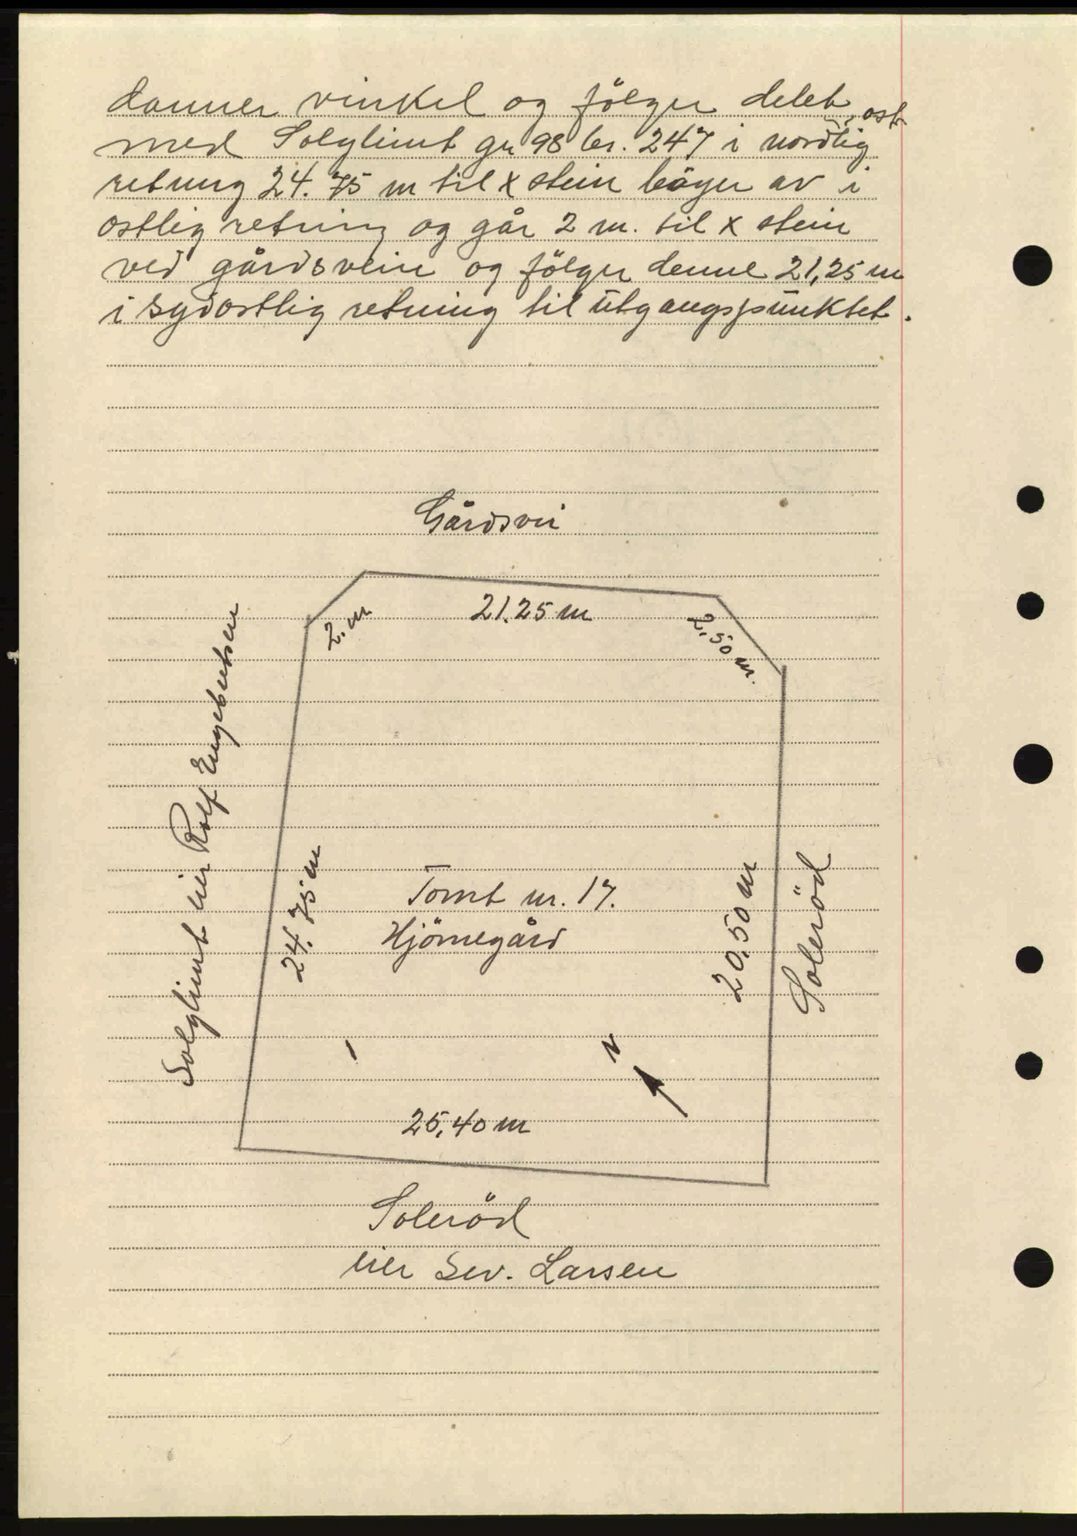 danner vinkel og fölger delet
med Solglimt gn 98 br. 247 i nordlig
öst
retning 24.75 m til x stein böyer av i
ostlig retning og går 2 m. til x stein
ved gårdsvein og fölger denne 21,25 m
i sydostlig retning til utgangspunktet.
Gårdsvei
21.25 m
2. m
2,50 m.
Solglimt eier Rolf Engebretsen
24.75 m
Tomt nr. 17.
Hjörnegård
20.50 m
Soleröd
N
25,40 m
Soleröd
eier Sev. Larsen